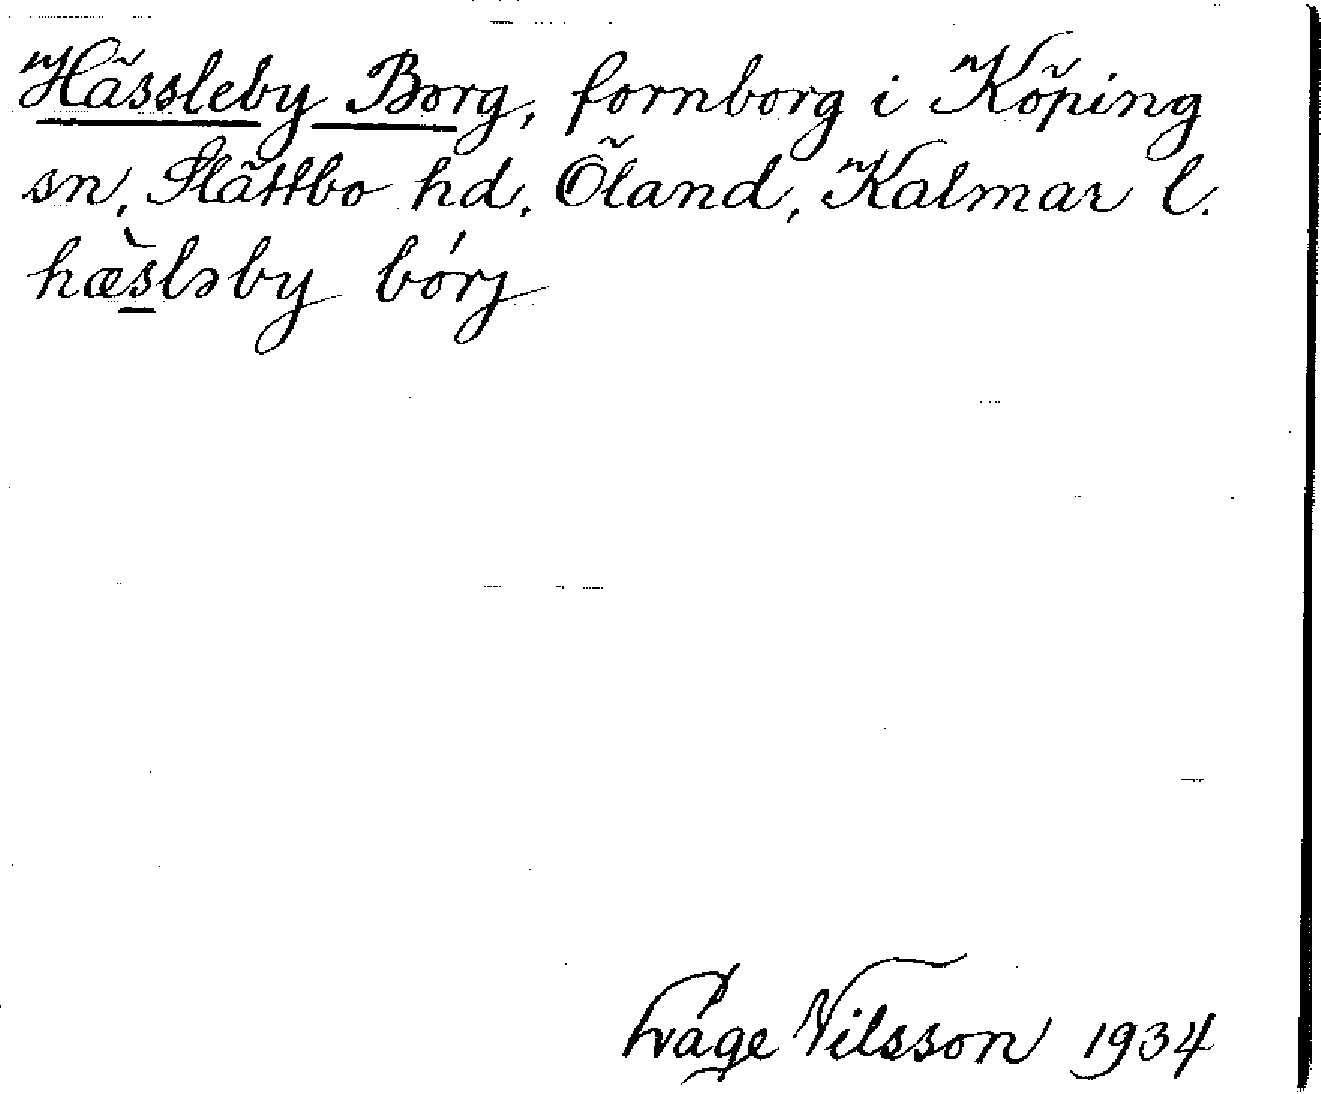 Hässleby Borg, fornborg i Köping
sn, Slättbo hd, Öland, Kalmar l.
hæ̀sləby bórj
Nilsson 1934